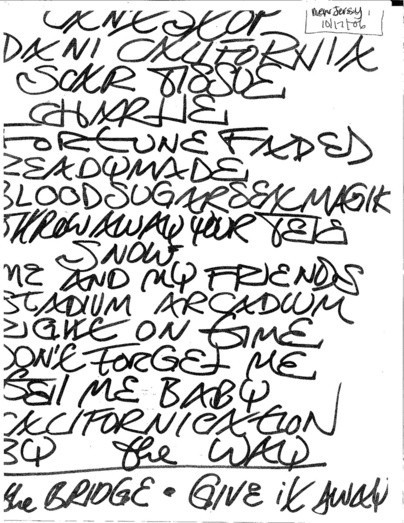 New Jersey,
10/17/06
CAN'T STOP
DANI CALIFORNIA
SCAR TISSUE
CHARLIE
FORTUNE FADED
READYMADE
BLOODSUGARSEXMAGIK
THROWAWAY YOUR TELE
SNOW
ME AND MY FRIENDS
STADIUM ARCADIUM
RIGHT ON TIME
DON'T FORGET ME
TELL ME BABY
CALIFORNICATION
BY the WAY
the BRIDGE • GIVE iT AWAY